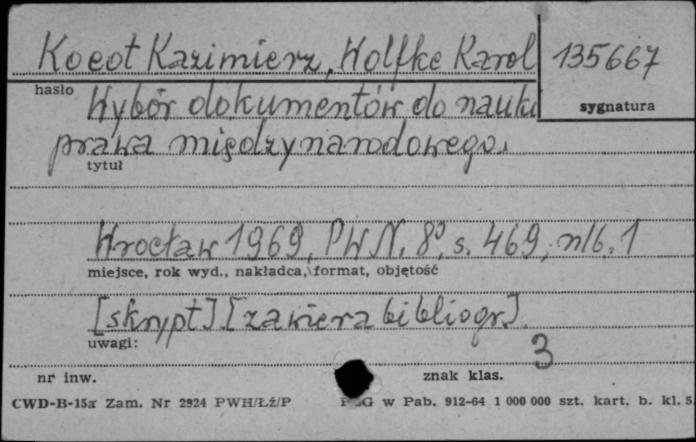 Kocot Kazimierz, Wolfke Karol 135667
hasło
sygnatura
Wybór dokumentów do nauki
prawa międzynarodowego.
tytuł
Wrocław 1969, PWN, 8°, s. 469, nlb. 1
miejsce, rok wyd., nakładca, format, objętość
[skrypt] [zawiera bibliogr.].
uwagi:
3
nr inw. znak klas.
CWD-B-15a Zam. Nr 2924 PWH/Łź/P w Pab. 912-64 1 000 000 szt. kart. b. kl. 5.